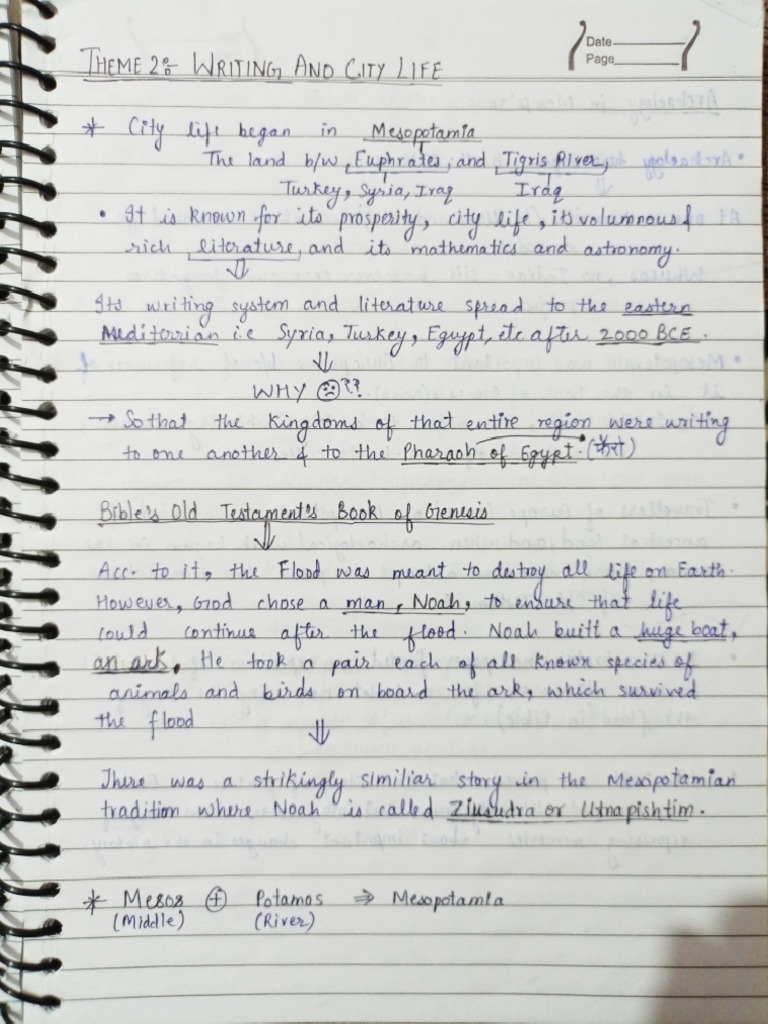 Date
Page
THEME 2:- WRITING AND CITY LIFE
* City life began in Mesopotamia
The land b/w Euphrates, and Tigris River,
Turkey, Syria, Iraq Iraq
• It is known for its prosperity, city life, its volumnous &
rich literature, and its mathematics and astronomy.
⇓
Its writing system and literature spread to the eastern
Mediterrian i.e Syria, Turkey, Egypt, etc after 2000 BCE.
⇓
WHY ☹??
→ So that the kingdoms of that entire region were writing
to one another & to the Pharaoh of Egypt. (फैरो)
Bible's Old Testament's Book of Genesis
⇓
Acc. to it, the Flood was meant to destroy all life on Earth.
However, God chose a man, Noah, to ensure that life
could continue after the flood. Noah built a huge boat,
an ark. He took a pair each of all known species of
animals and birds on board the ark, which survived
the flood
⇓
There was a strikingly similiar story in the Mesopotamian
tradition where Noah is called Ziusudra or Utnapishtim.
* Mesos ⊕ Potamos ⇒ Mesopotamia
(Middle) (River)